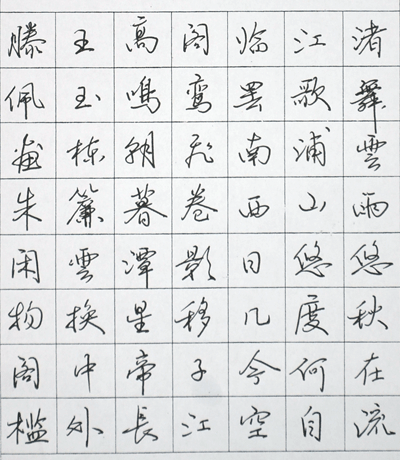 滕王高阁临江渚
佩玉鸣鸾罢歌舞
画栋朝飞南浦雲
朱簾暮卷西山雨
闲雲潭影日悠悠
物换星移几度秋
阁中帝子今何在
槛外長江空自流